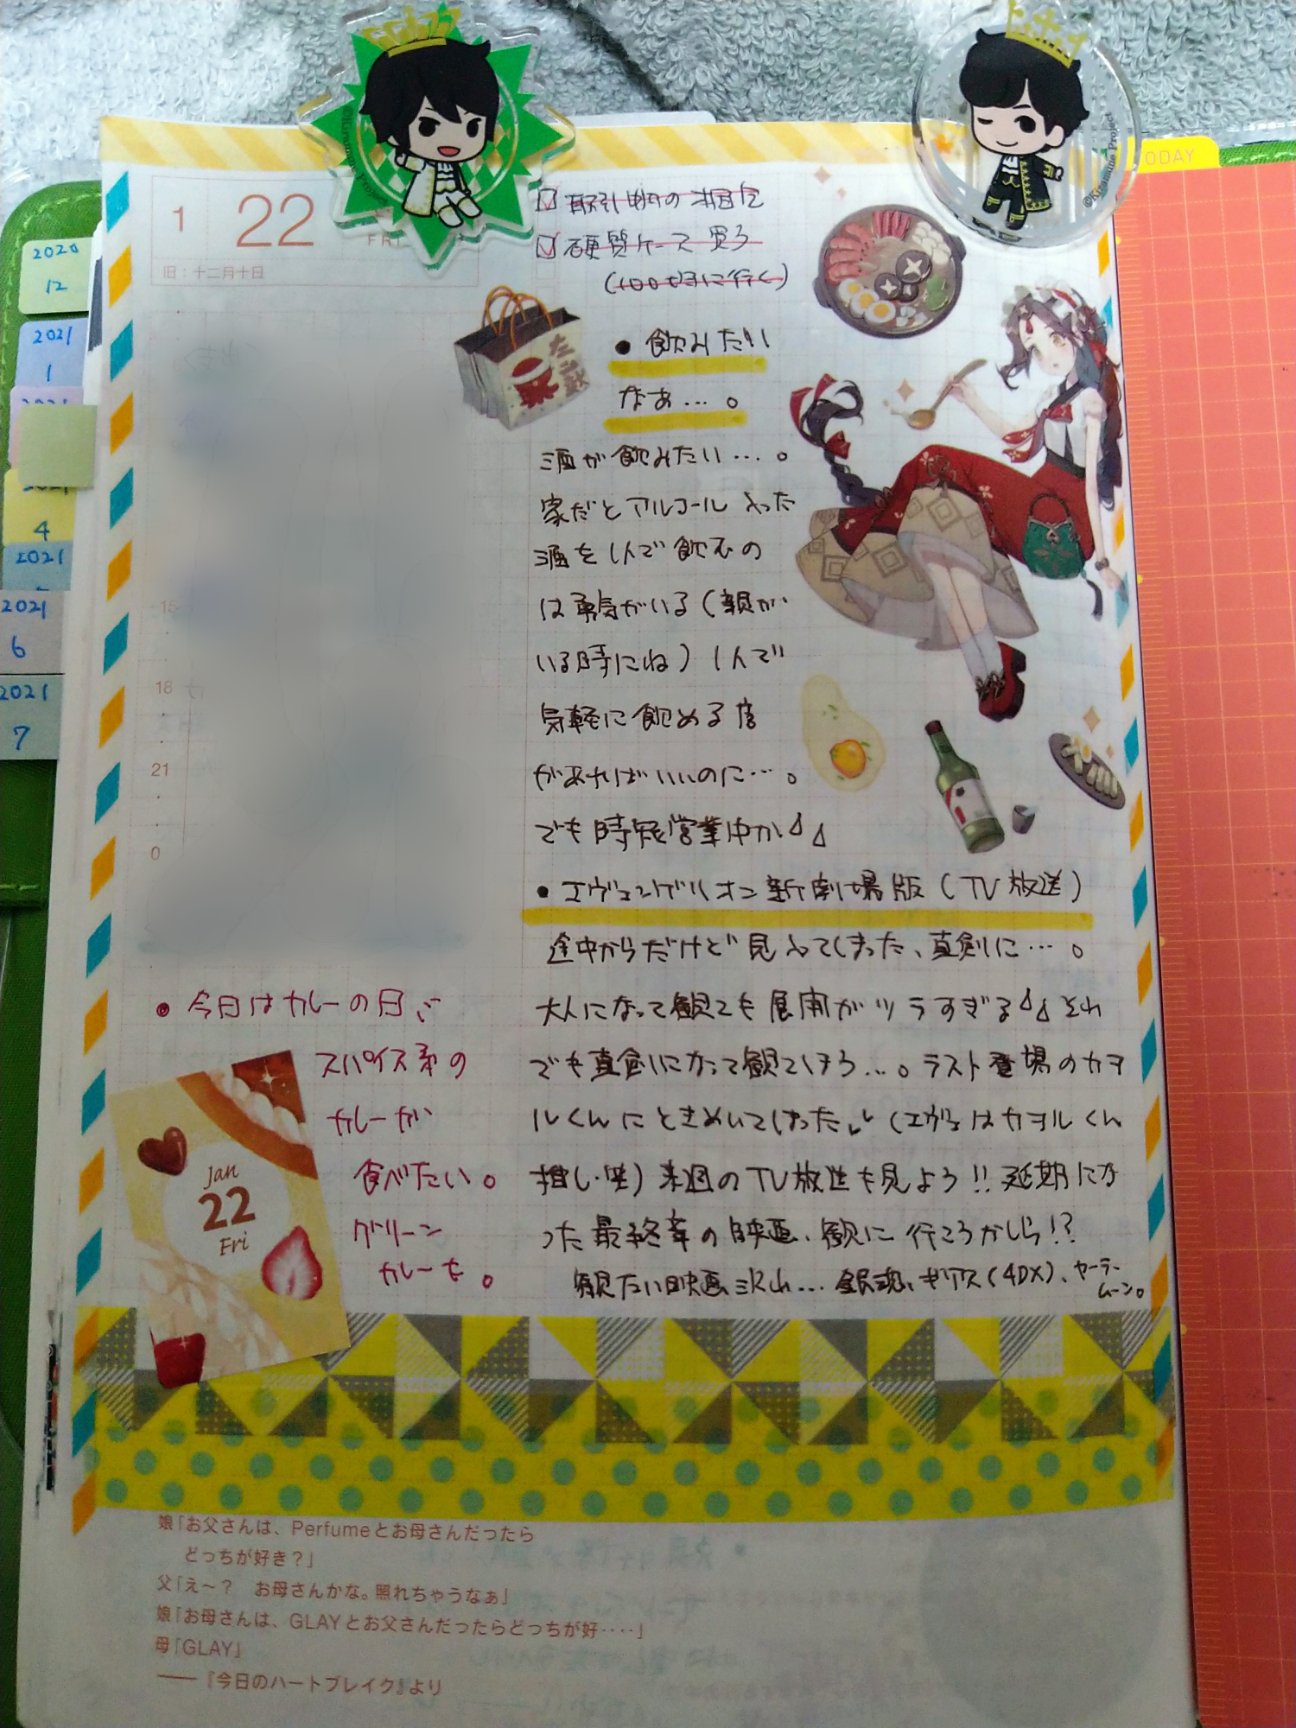 1 22
FRI
旧：十二月十日
TODAY
©Kiramune Project
2020
12
2021
1
2021
4
2021
2021
6
2021
7
15
18
21
0
硬質ケース買う
(100均に行く)
•飲みたい
なぁ…。
酒が飲みたい…。
家だとアルコール入った
酒を1人で飲むの
は勇気がいる(親が
いる時にね)1人で
気軽に飲める店
があればいいのに…。
でも時短営業中か
•エヴァンゲリオン新劇場版(TV放送)
途中からだけど見入ってしまった、真剣に…。
大人になって観ても展開がツラすぎる それ
でも真剣になって観てしまう…。ラスト登場のカヲ
ルくんにときめいてしまった (エヴァはカヲルくん
推し・笑)来週のTV放送も見よう!!延期にな
った最終章の映画、観に行こうかしら!?
観たい映画沢山…銀魂、ギアス(4DX)、セーラー
ムーン。
•今日はカレーの日
スパイス系の
カレーが
食べたい。
グリーン
カレーを。
Jan
22
Fri
娘「お父さんは、Perfumeとお母さんだったら
どっちが好き？」
父「え〜？　お母さんかな。照れちゃうなぁ」
娘「お母さんは、GLAYとお父さんだったらどっちが好‥‥」
母「GLAY」
――『今日のハートブレイク』より